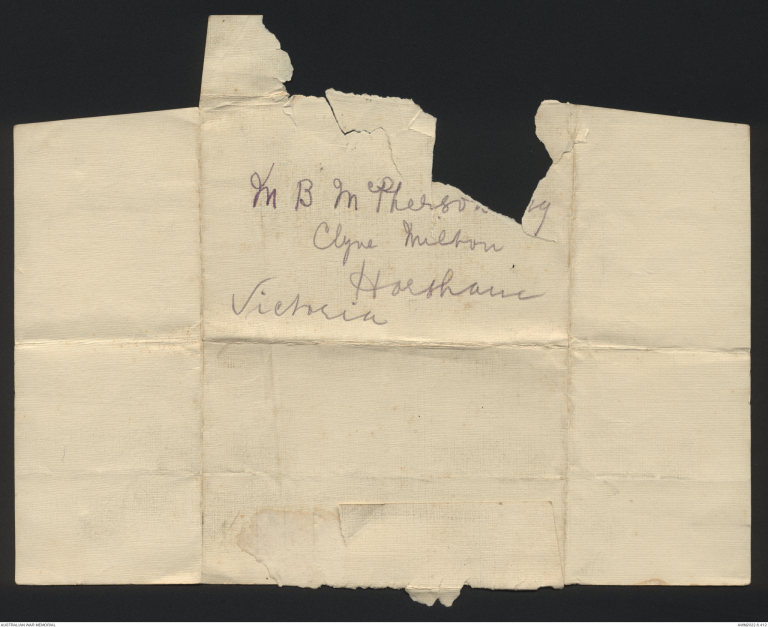 M B McPherson
Clyne Milton
Horsham
Victoria
AUSTRALIAN WAR MEMORIAL